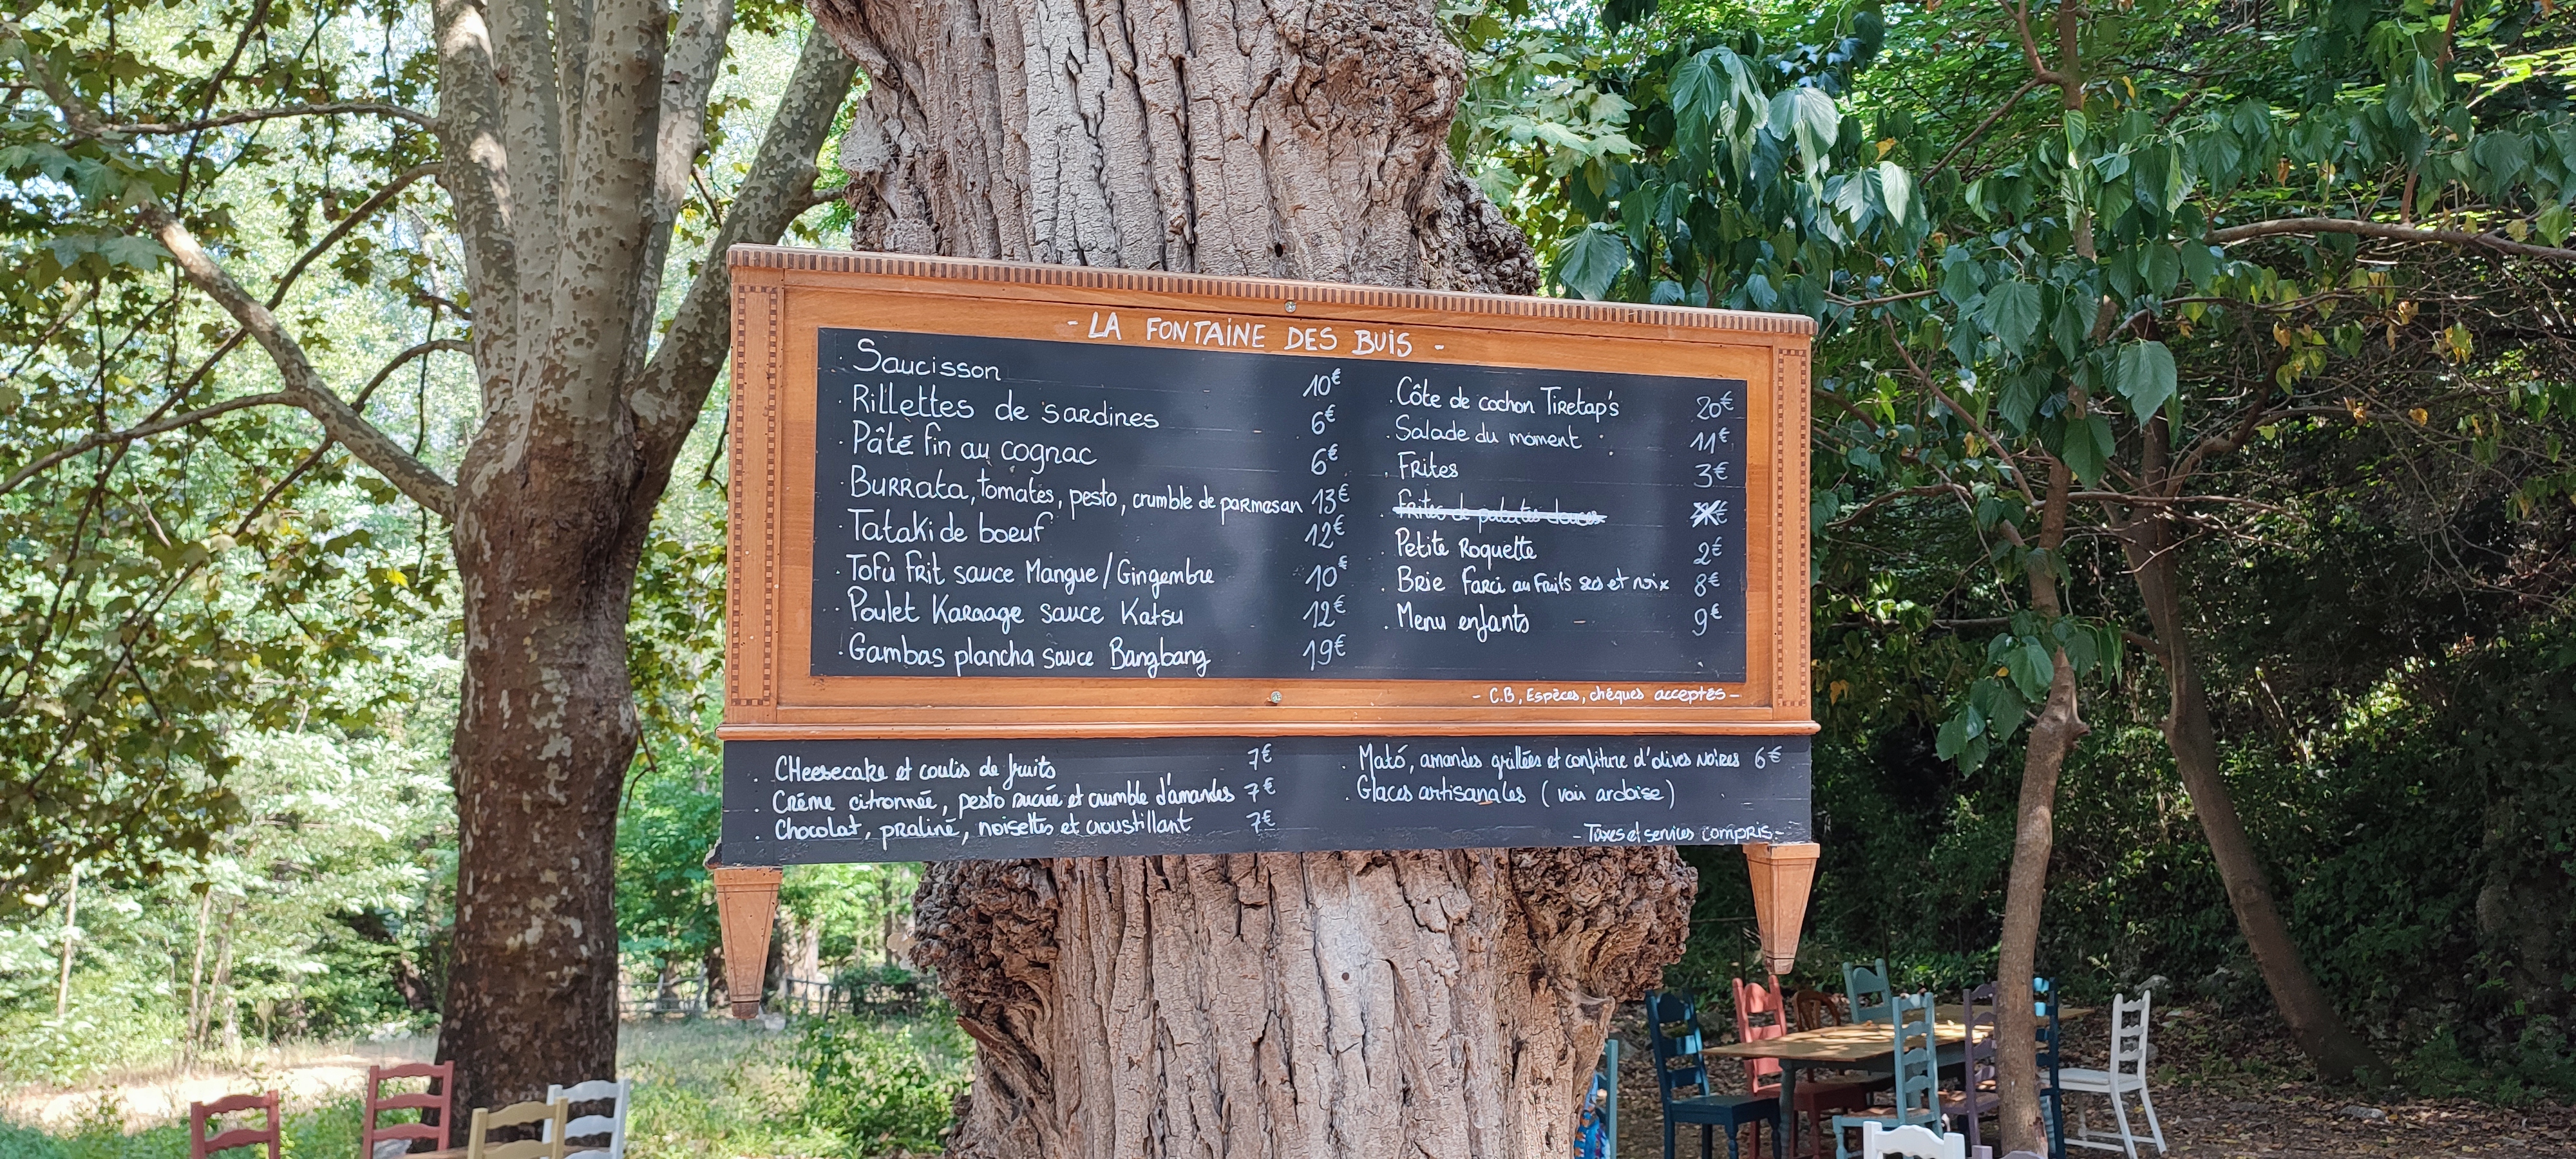 - LA FONTAINE DES BUIS -
. Saucisson 10€
. Rillettes de sardines 6€
. Pâté fin au cognac 6€
. Burrata, tomates, pesto, crumble de parmesan 13€
. Tataki de boeuf 12€
. Tofu frit sauce Mangue/Gingembre 10€
. Poulet Karaage sauce Katsu 12€
. Gambas plancha sauce Bangbang 19€
. Côte de cochon Tiretap's 20€
. Salade du moment : 11€
. Frites 3€
. Frites de patates douces
. Petite Roquette 2€
. Brie Farci au Fruits secs et noix 8€
. Menu enfants 9€
- C.B, Espèces, chèques acceptés -
. Cheesecake et coulis de fruits 7€
. Crème citronnée, pesto sucrée et crumble d'amandes 7€
. Chocolat, praliné, noisettes et croustillant 7€
. Mató, amandes grillées et confiture d'olives noires 6€
. Glaces artisanales (voir ardoise)
- Taxes et services compris -